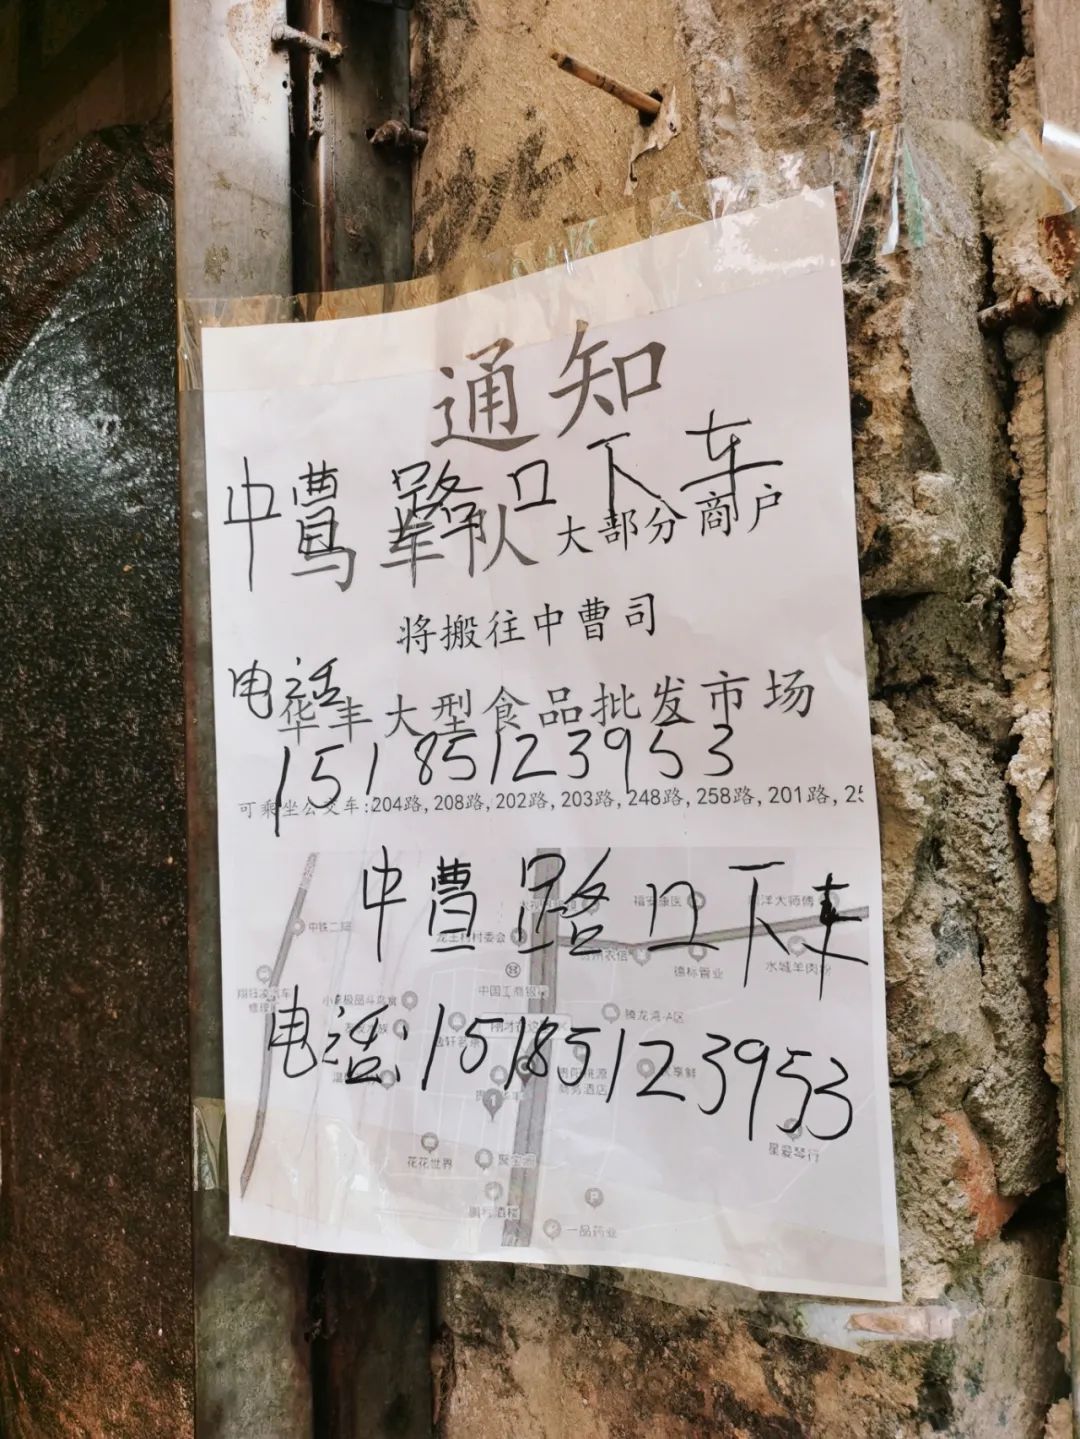 通知
中曹 路口下车
马车队大部分商户
将搬往中曹司
电话
华丰大型食品批发市场
15185123953
可乘坐公交车:204路,208路,202路,203路,248路,258路,201路,25
中曹路口下车
福安康医
中铁二局
龙王村村委会
德标管业
水城羊肉粉
中国工商银行
电话:15185123953
腾龙湾-A区
花花世界
星爱琴行
P
一品药业